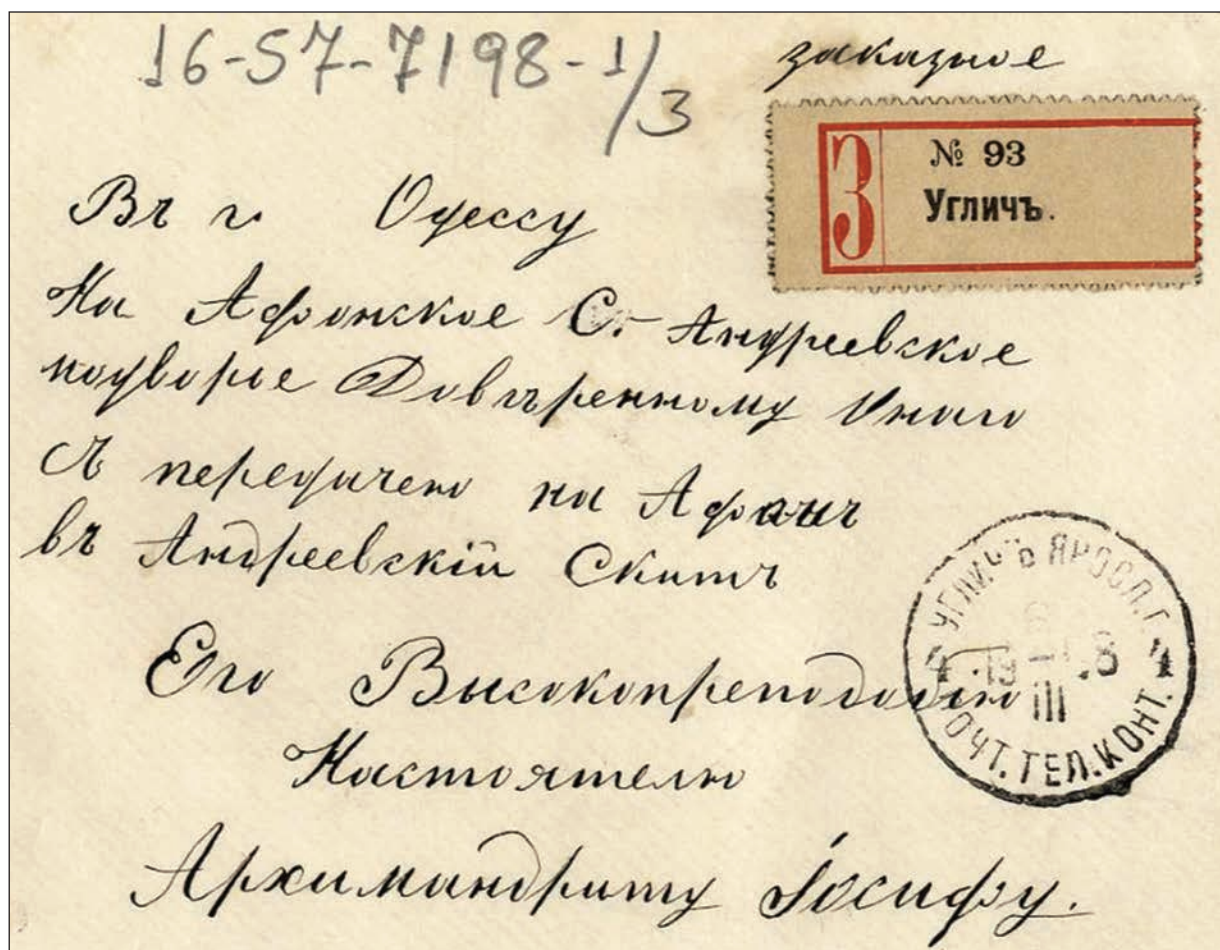 16-57-7198-1/3
заказное
З
№ 93
Угличъ.
Въ г. Одессу
На Афонское С. Андреевское
подворье Довѣренному Онаго
Съ передачею на Афонъ
въ Андреевскій Скитъ
Его Высокопреподобію
Настоятелю
Архимандриту Іосифу.
УГЛИЧЪ ЯРОСЛ.Г.
4 4
III
ПОЧТ.ТЕЛ.КОНТ.